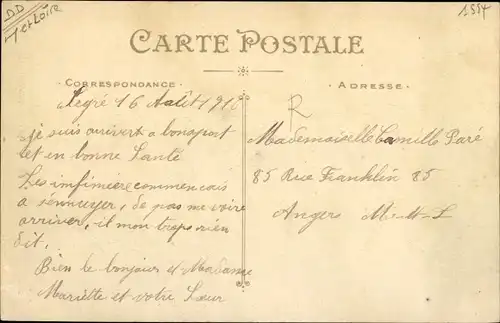 DD
M et Loire
1554
CARTE POSTALE
CORRESPONDANCE
ADRESSE
Segré 16 Août 191
R
je suis arrivert a bonaport
et en bonne Santé
Les imfimière commencais
a sennuyer, de pas me voire
arriver, il mon trops rien
dit.
Bien le bonjour et Madame
Mariette et votre Sœur
Mademoiselle Camille Paré
85 Rue Franklin 85
Angers M-et-L